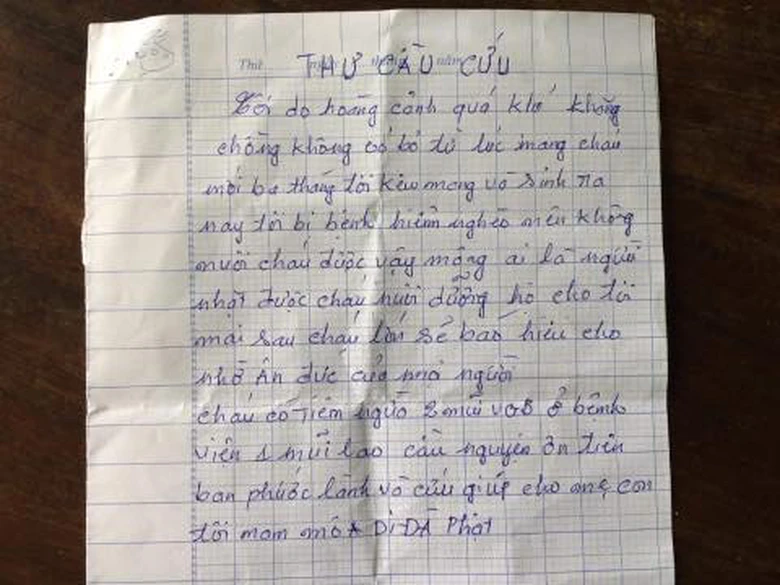 Thứ năm
THƯ CẦU CỨU
Tôi do hoàng cảnh quá khó khăng
chồng không có bỏ từ lúc mang cháu
mới ba tháng tôi kêu mang và sinh ra
nay tôi bị bệnh hiểm nghèo nên không
nuôi cháu được vậy mong ai là người
nhặt được cháu nuôi dưỡng hộ cho tôi
mai sau cháu lớn sẽ báo hiêu cho
nhờ ân đức của nhà người
cháu có Tiêm ngừa 2 mũi vơs ở bệnh
viên 1 mũi lao cầu nguyện ơn trên
ban phước lành và cứu giúp cho mẹ con
tôi mam mô A Di ĐÀ Phật